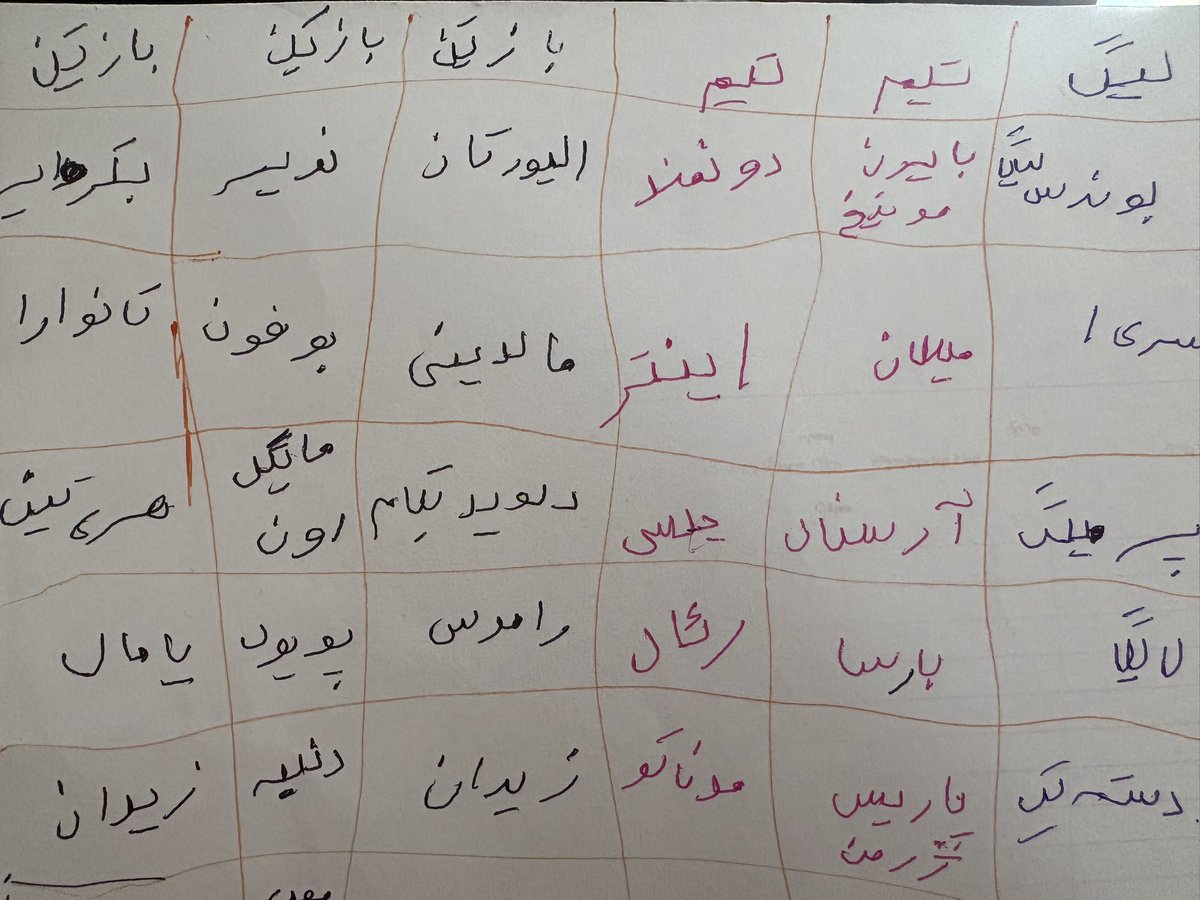 لیگ تیم تیم بازیکن بازیکن بازیکن
بوندس لیگا بایرن مونیخ دونفلا الیورکان ندیسر بکرهایر
سری ا میلان اینتر مالدینی بوفون کانوارا
پرمیلگ آرسنال چلسی دیوید بکام مایکل اون هری کین
لالیگا بارسا رئال راموس پویول یامال
دسته یک پاریس ژرمن موناکو زیدان دئبیه زیدان